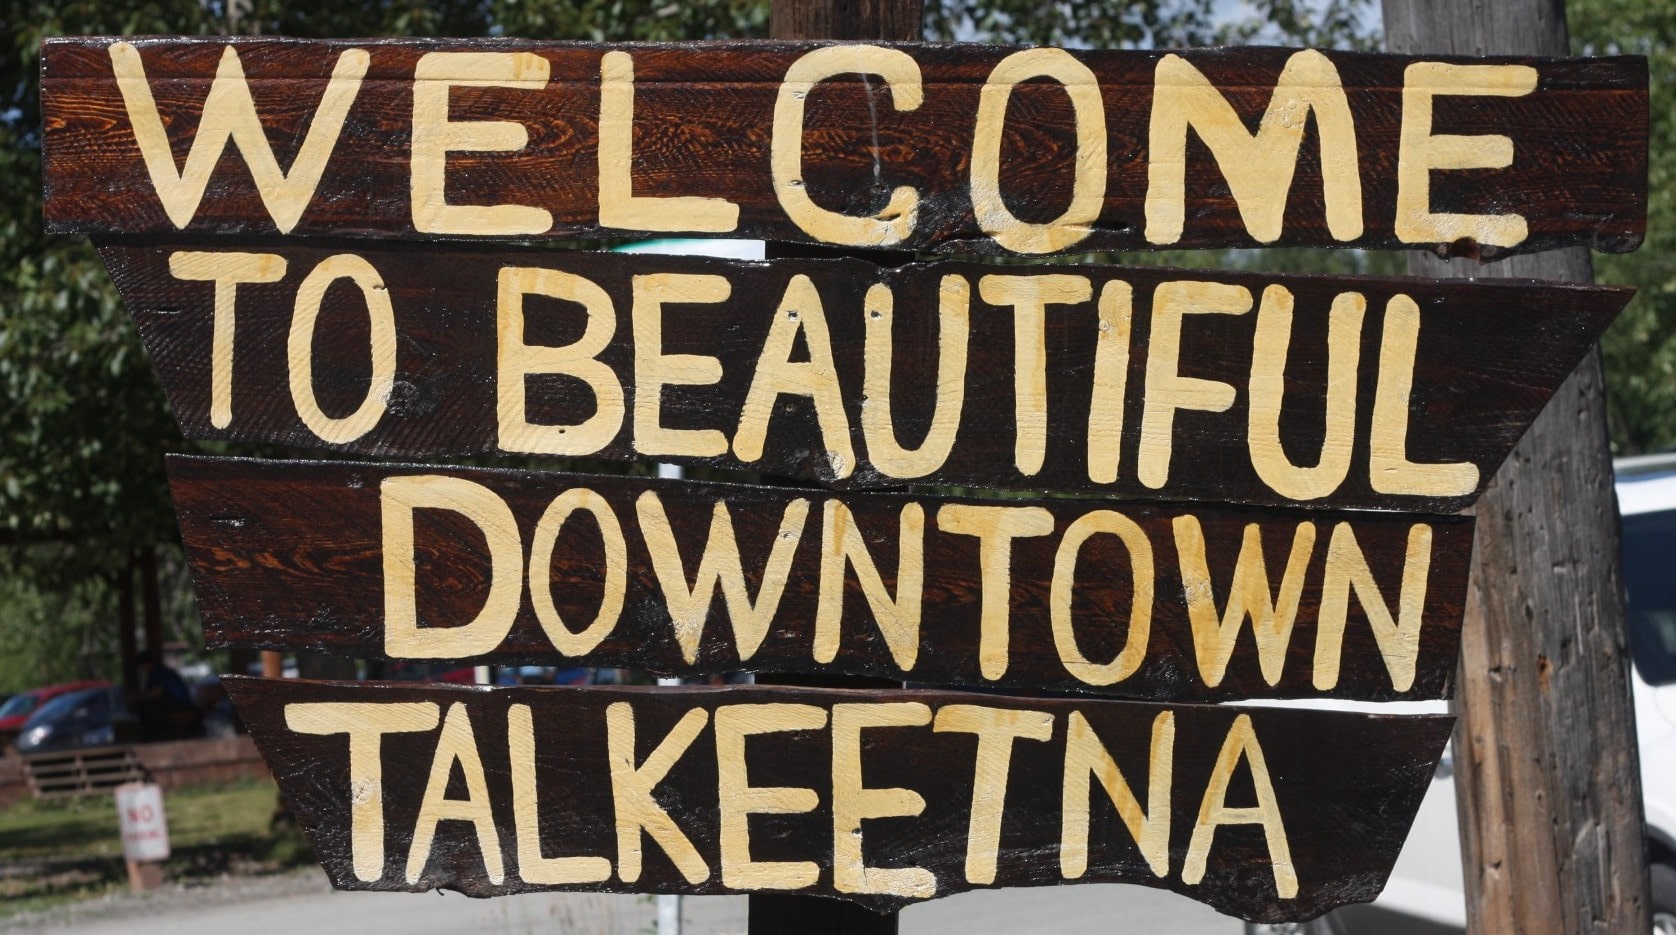 WELCOME
TO BEAUTIFUL
DOWNTOWN
TALKEETNA
NO